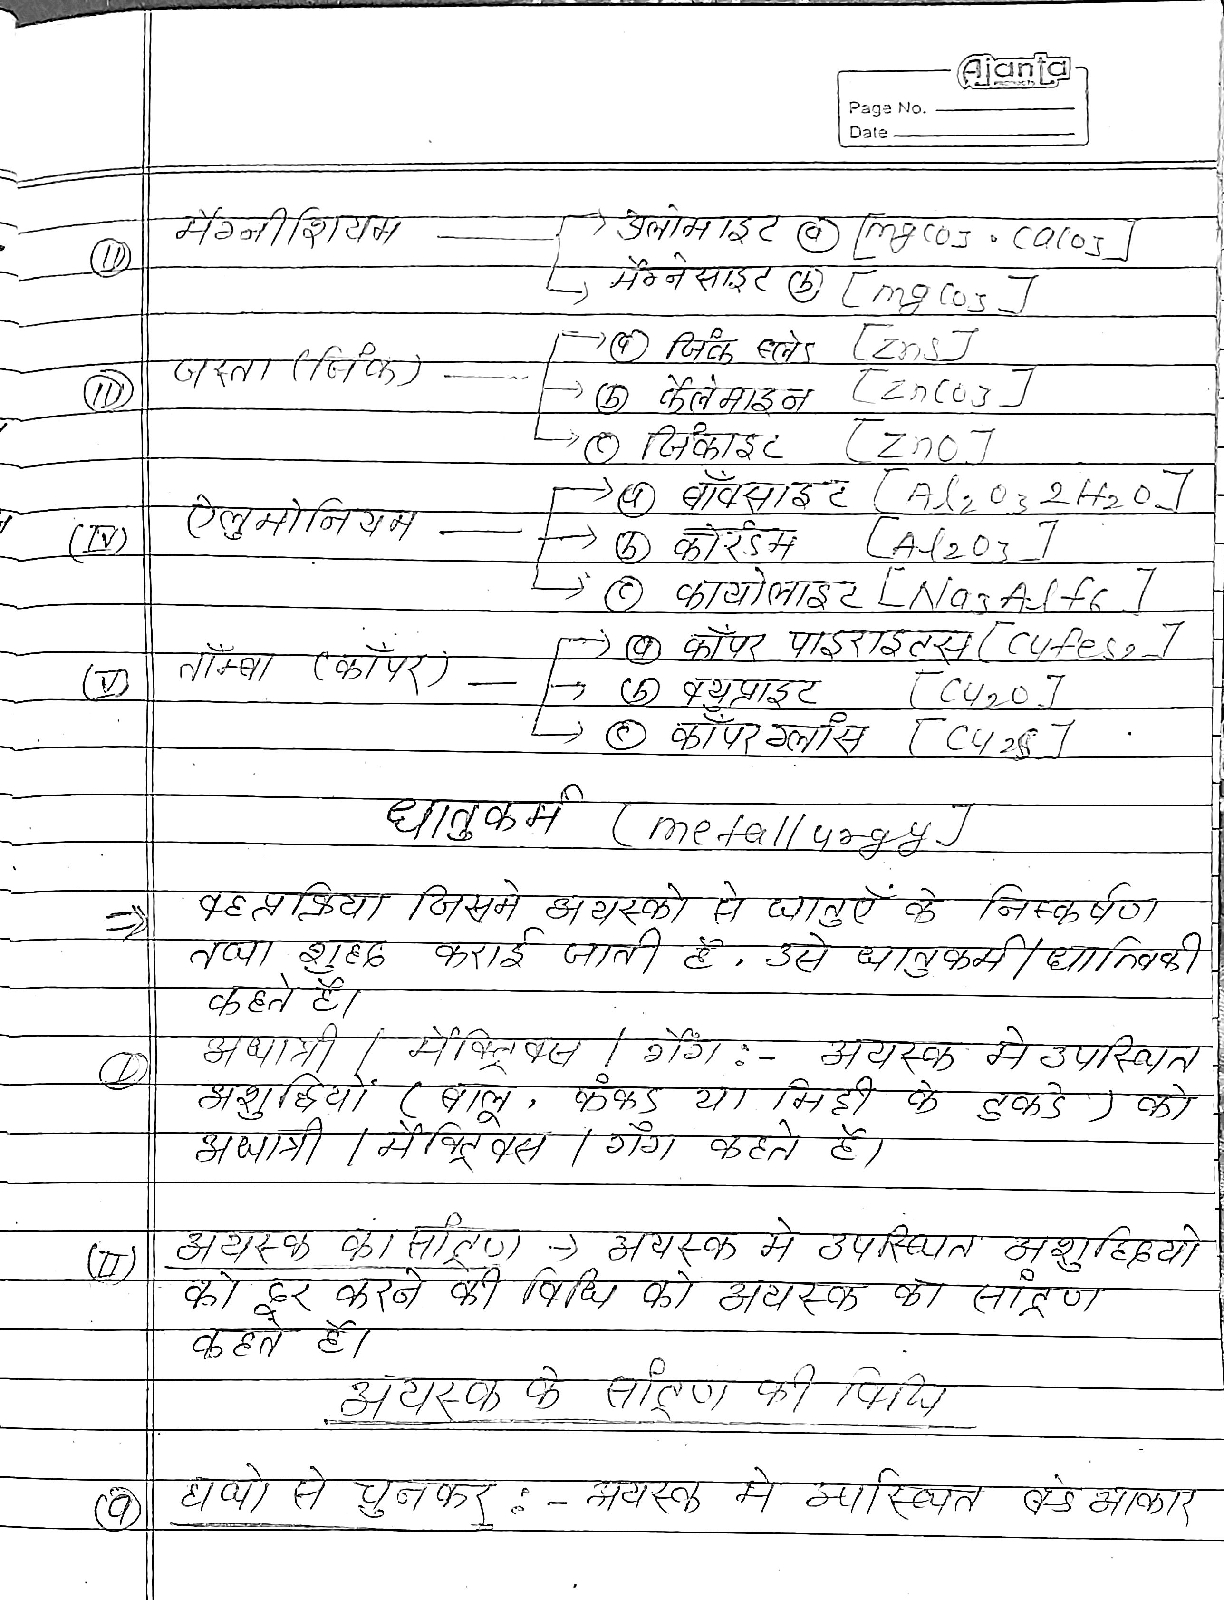 Ajanta
Page No.
Date
(II) मैग्नीशियम → डलोमाइट (a) [mgco3 . caco3]
→ मैग्नेसाइट (b) [mgco3]
(III) जस्ता (जिंक) → (a) जिंक ब्लेड [ZnS]
→ (b) कैलेमाइन [ZnCO3]
→ (c) जिंकाइट [ZnO]
(IV) ऐलुमोनियम → (a) बॉक्साइट [Al2O3 2H2O]
→ (b) कोरंडम [Al2O3]
→ (c) कायोलाइट [Na3Alf6]
(V) ताँम्बा (कॉपर) → (a) कॉपर पाइराइटस [Cufes2]
→ (b) क्युप्राइट [Cu2O]
→ (c) कॉपर ग्लांस [Cu2S]
धातुकर्म [metallurgy]
⇒ वह प्रक्रिया जिसमे अयस्को से धातुएँ के निस्कर्षण
तथा शुद्ध कराई जाती है, उसे धातुकर्म / धात्विकी
कहते हैं।
(I) अधात्री / मैट्रिक्स / गैंग :- अयस्क मे उपस्थित
अशुद्धियों (बालू, कंकड या मिट्टी के टुकडे) को
अधात्री / मैट्रिक्स / गैंग कहते हैं।
(II) अयस्क का सांद्रण → अयस्क मे उपस्थित अशुद्धियो
को दूर करने की विधि को अयस्क का सांद्रण
कहते हैं।
अयस्क के सांद्रण की विधि
(a) हाथो से चुनकर :- अयस्क मे बडे आकार